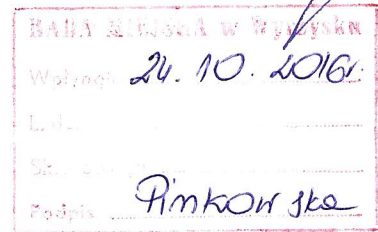 RADA MIEJSKA w Wyrzysku
Wpłynęło 24.10.2016r.
L. d.
Podpis Pinkowska